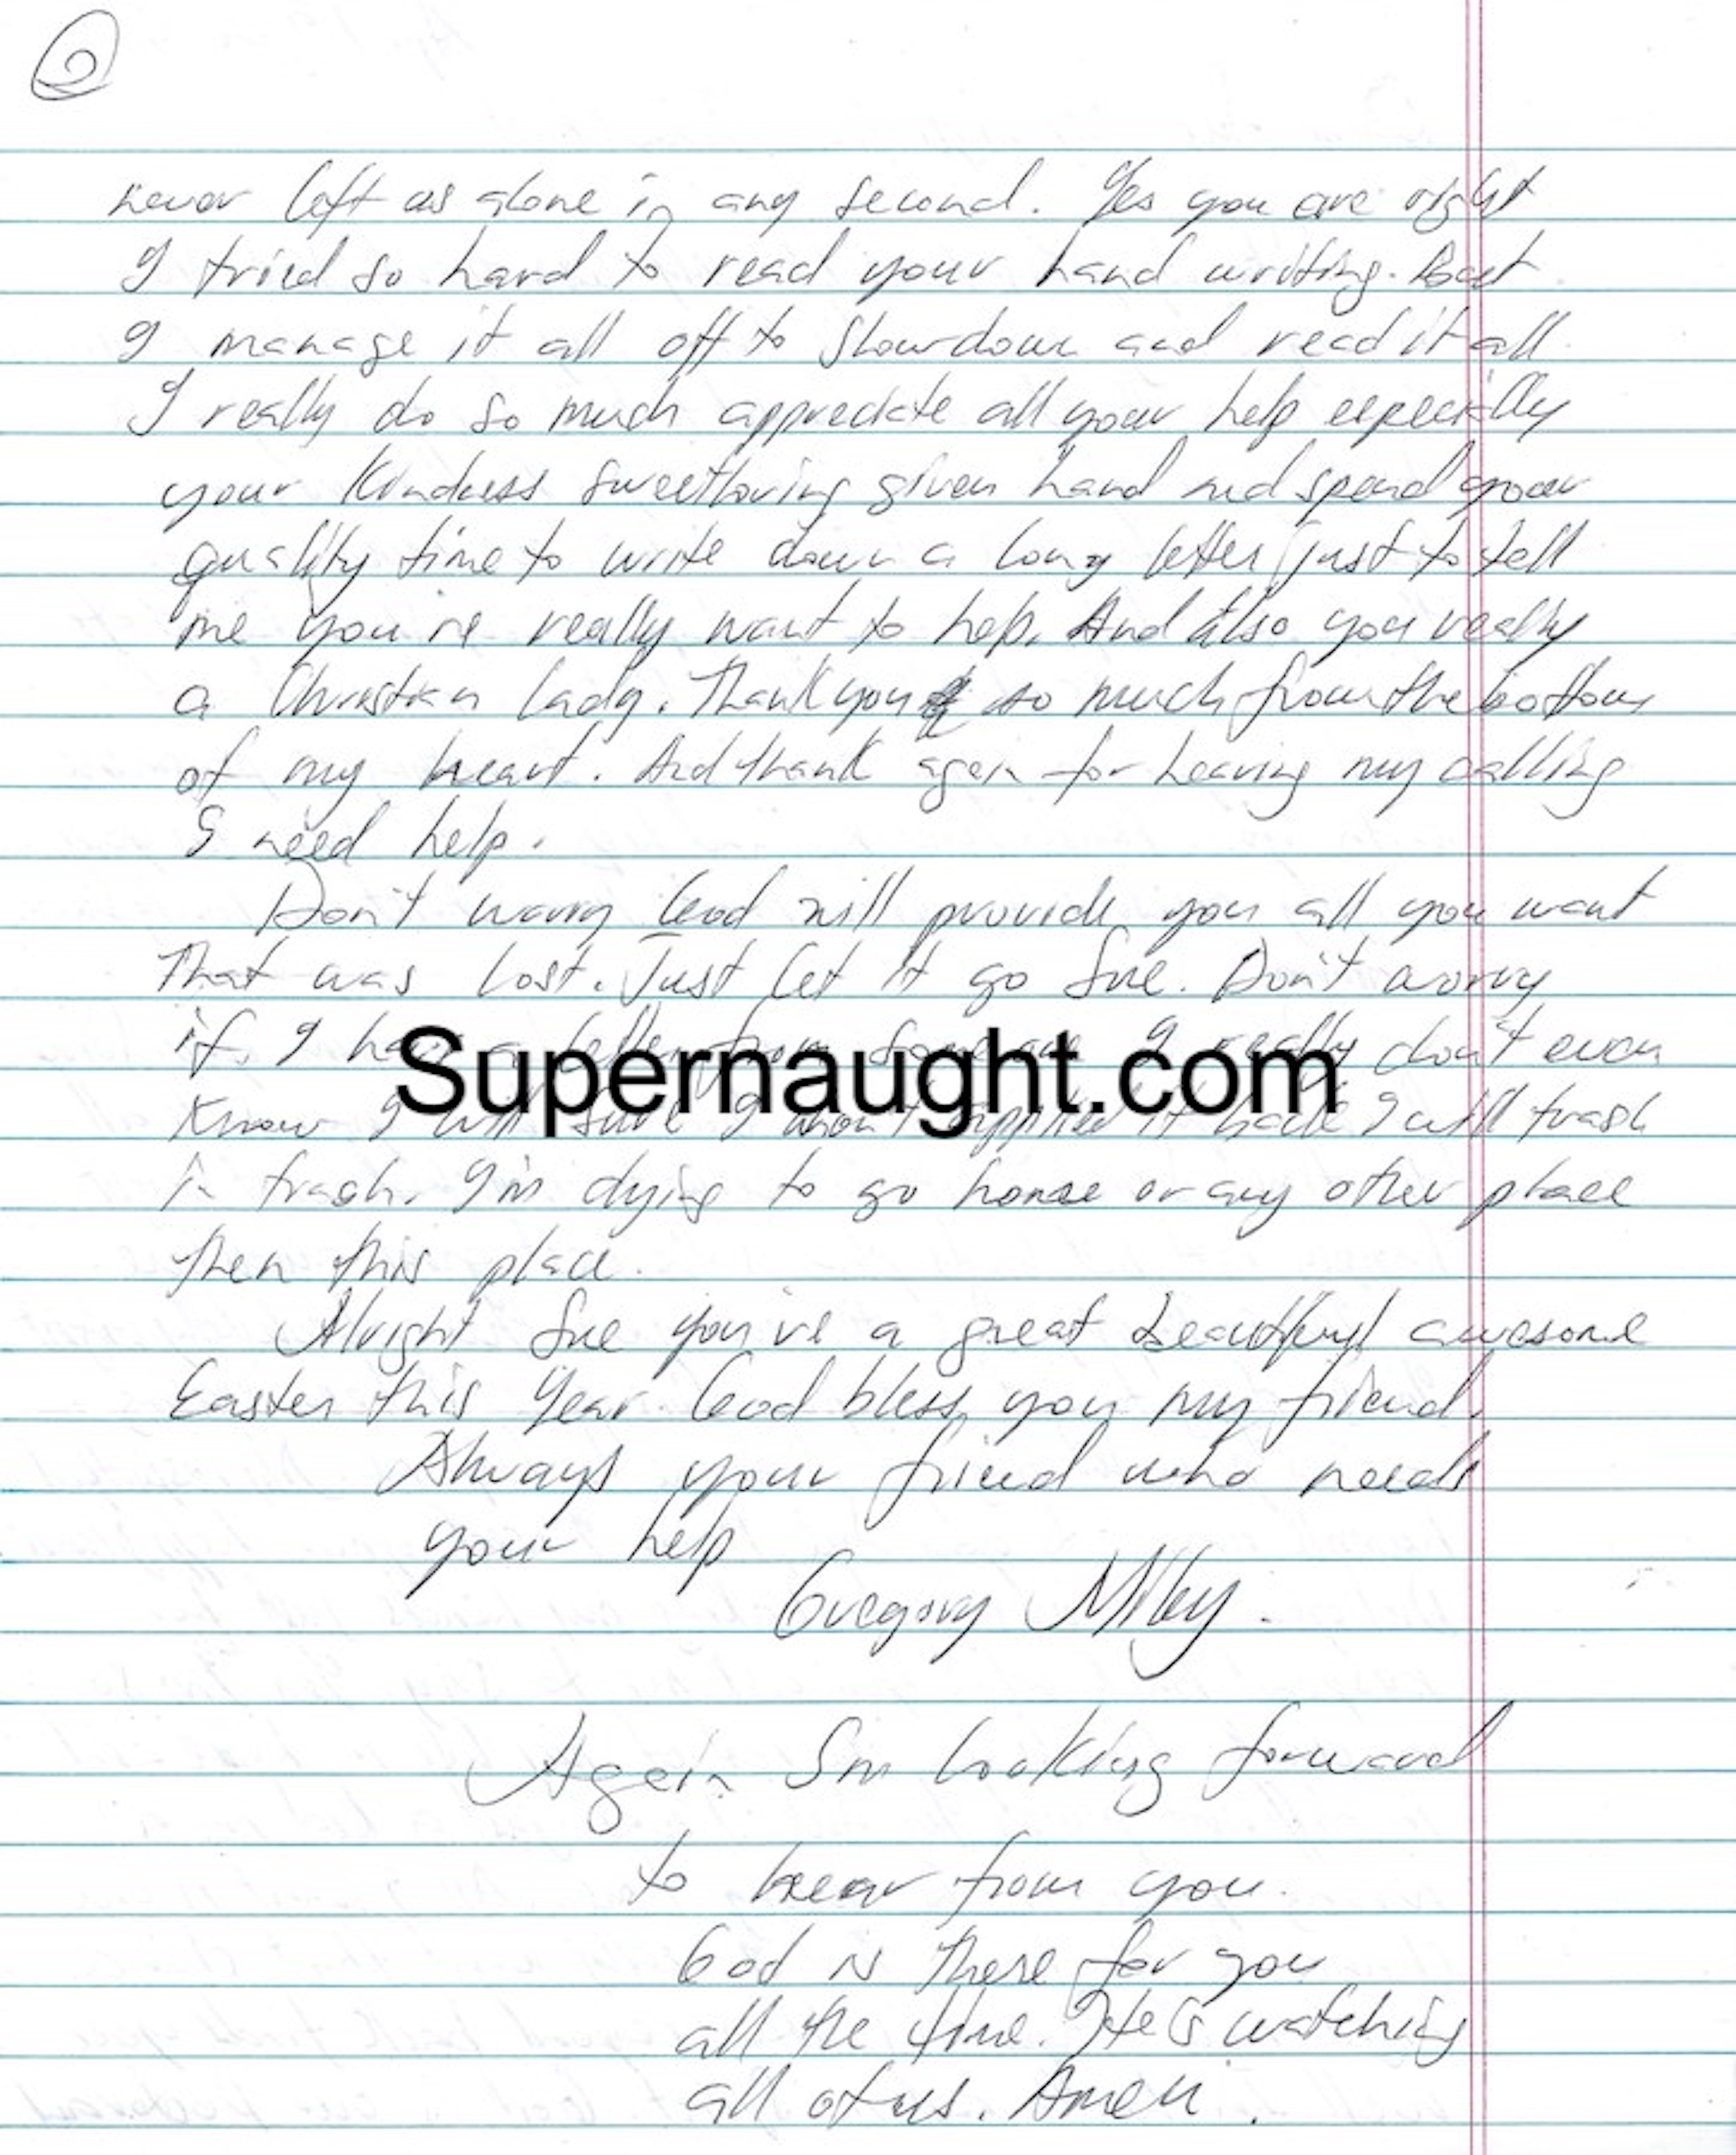 2
never left us alone in any second. Yes you are right
I tried so hard to read your hand writing. But
I manage it all off to slowdown and read it all.
I really do so much appreciate all your help especially
your Kindness sweetloving given hand and spend your
quality time to write down a long letter just to tell
me you're really want to help. And also you really
a Christian lady. Thank you so much from the bottom
of my heart. And thank again for hearing my calling
I need help.
Don't worry God will provide you all you want
That was lost. Just let it go Sue. Don't worry
if I have a letter from someone I really don't even
Know I will sure I won't it back I will trash
in trash. I'm dying to go home or any other place
then this place.
Supernaught.com
Alright Sue you've a great beautiful awesome
Easter this Year. God bless you my friend.
Always your friend who needs
your help
Gregory Miley.
Again I'm looking forward
to hear from you.
God is there for you
all the time. He is watching
all of us. Amen.